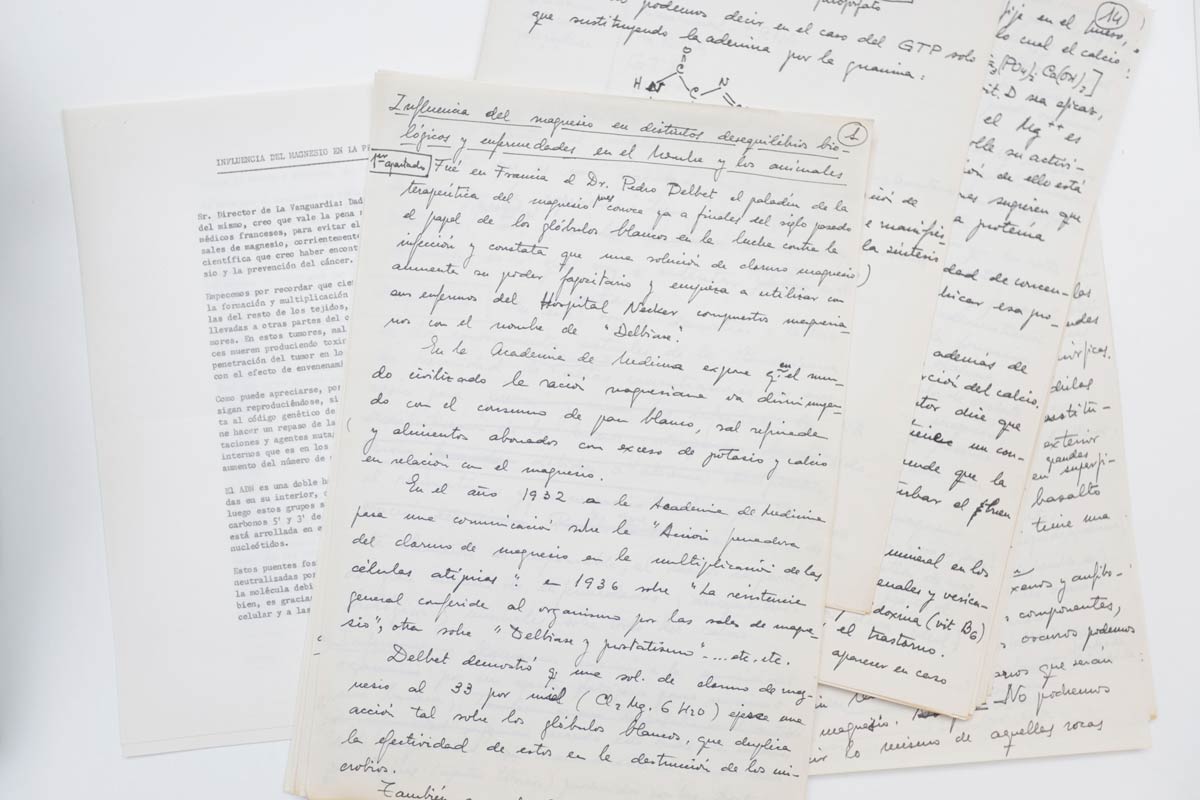 INFLUENCIA DEL MAGNESIO EN LA
Sr. Director de La Vanguardia: Dad
del mismo, creo que vale la pena
médicos franceses, para evitar el
sales de magnesio, corrientemente
científica que creo haber encont
sio y la prevención del cáncer.
Empecemos por recordar que cie
la formación y multiplicación
las del resto de los tejidos,
llevadas a otras partes del c
mores. En estos tumores, mal
ces mueren produciendo toxin
penetración del tumor en lo
con el efecto de envenenami
Como puede apreciarse, por
sigan reproduciéndose, si
ta al código genético de
ne hacer un repaso de la
taciones y agentes muta
internos que es en los
aumento del número de
El ADN es una doble h
das en su interior,
luego estos grupos s
carbonos 5' y 3' de
está arrollada en e
nucleótidos.
Estos puentes fos
neutralizadas por
la molécula debi
bien, es gracia
celular y a las
1
Influencia del magnesio en distintos desequilibrios bio-
lógicos y enfermedades en el hombre y los animales
1er apartado Fué en Francia el Dr. Pedro Delbet el paladín de la
terapeútica del magnesio pues conoce ya a finales del siglo pasado
el papel de los glóbulos blancos en la lucha contra la
infección y constata que una solución de cloruro magnesio
aumenta su poder fagocitario y empieza a utilizar con
sus enfermos del Hospital Necker compuestos magnesia-
nos con el nombre de "Delbiase".
En la Academia de Medicina expone q. en el mun-
do civilizado la ración magnesiana va disminuyen-
do con el consumo de pan blanco, sal refinada
y alimentos abonados con exceso de potasio y calcio
en relación con el magnesio.
En el año 1932 a la Academia de Medicina
pasa una comunicación sobre la "Acción frenadora
del cloruro de magnesio en la multiplicación de las
células atípicas": en 1936 sobre "La resistencia
general conferida al organismo por las sales de magne-
sio"; otra sobre "Delbiase y prostatismo" .... etc. etc.
Delbet demostró q. una sol. de cloruro de mag-
nesio al 33 por mil (Cl2Mg. 6 H2O) ejerce una
acción tal sobre los glóbulos blancos, que duplica
la efectividad de estos en la destrucción de los mi-
crobios.
También
podemos decir en el caso del GTP solo
que sustituyendo la adenina por la guanina:
O
C
HN
C
N
14
fije en el hueso,
lo cual el calcio
(PO4)2 Ca(OH)2]
vit. D sea eficaz,
el Mg++ es
su activi-
ión de ello está
sugieren que
a proteína
ión de
la síntesis
dad de concen-
además de
ción del calcio.
tor dice que
un con-
ende que la
mineral en los
doxina (vit B6)
el trastorno.
aparecer en caso
sustitu-
exterior
grandes
en superfi-
basalto
tiene una
xenos y anfíbo-
componentes,
oscuros podemos
que serán
No podremos
magnesio.
lo mismo de aquellas rocas